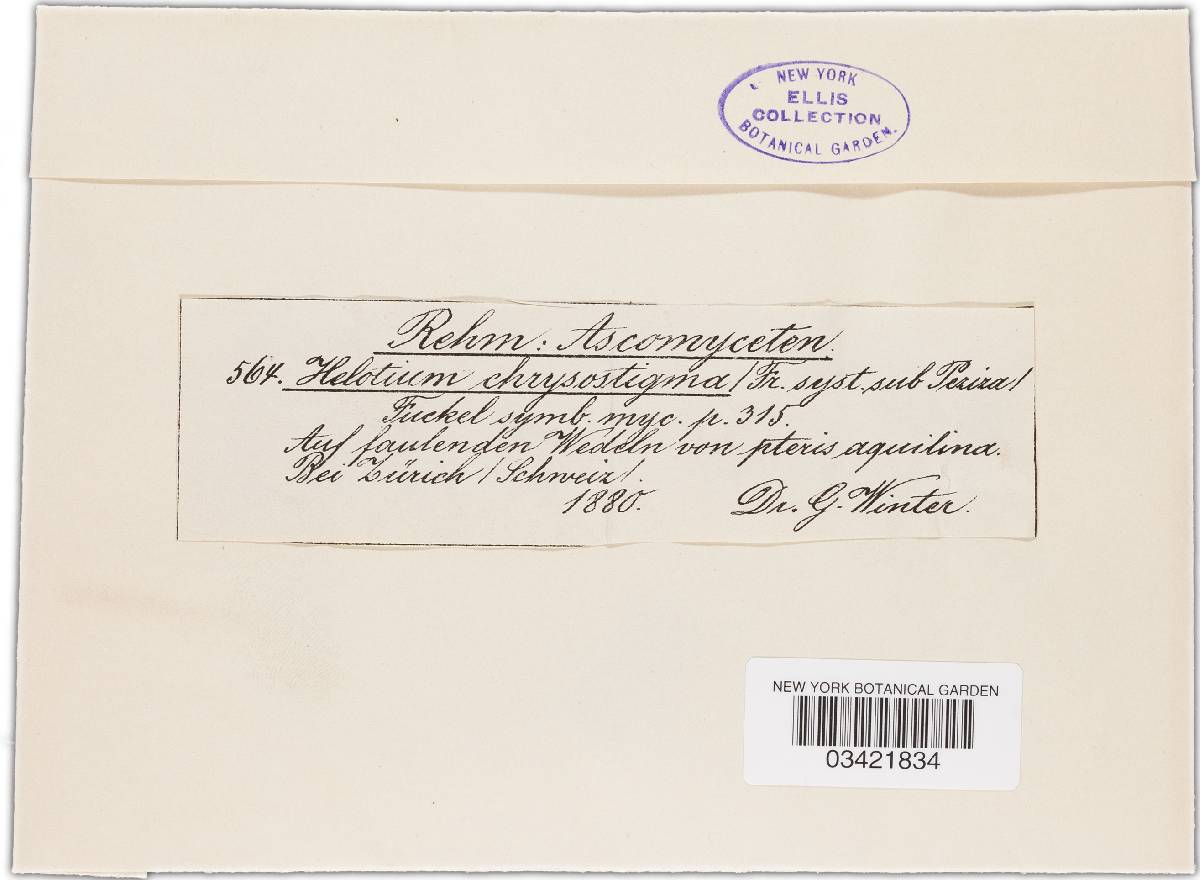 NEW YORK
ELLIS
COLLECTION
BOTANICAL GARDEN.
Rehm: Ascomyceten.
564. Helotium chrysostigma / Fr. syst. sub Peziza /
Fuckel symb. myc. p. 315.
Auf faulenden Wedeln von pteris aquilina.
Bei Zürich / Schweiz /.
1880. Dr. G. Winter.
NEW YORK BOTANICAL GARDEN
03421834